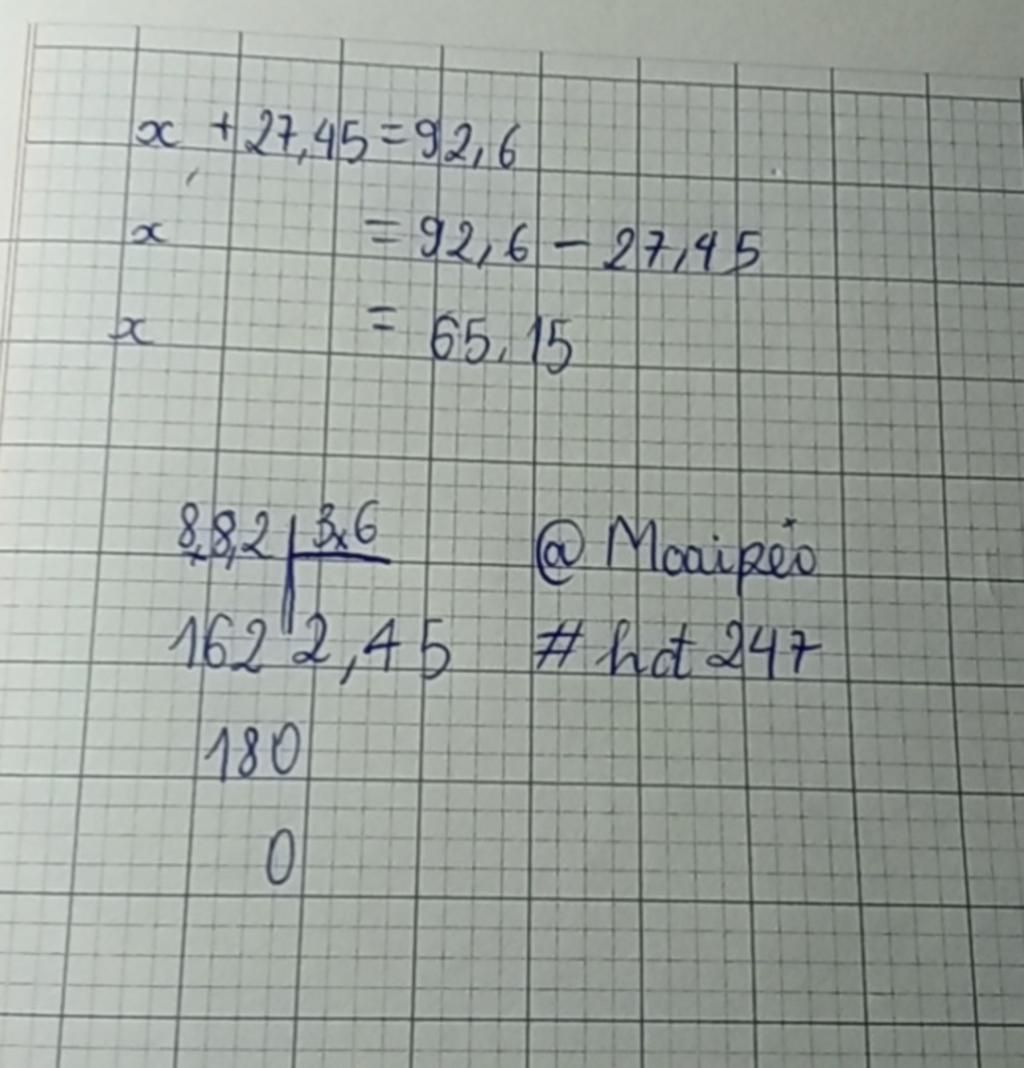 x + 27,45 = 92,6
x = 92,6 - 27,45
x = 65,15
8,8,2 3,6
162 2,45
180
0
@ Moaipéo
# hot 247